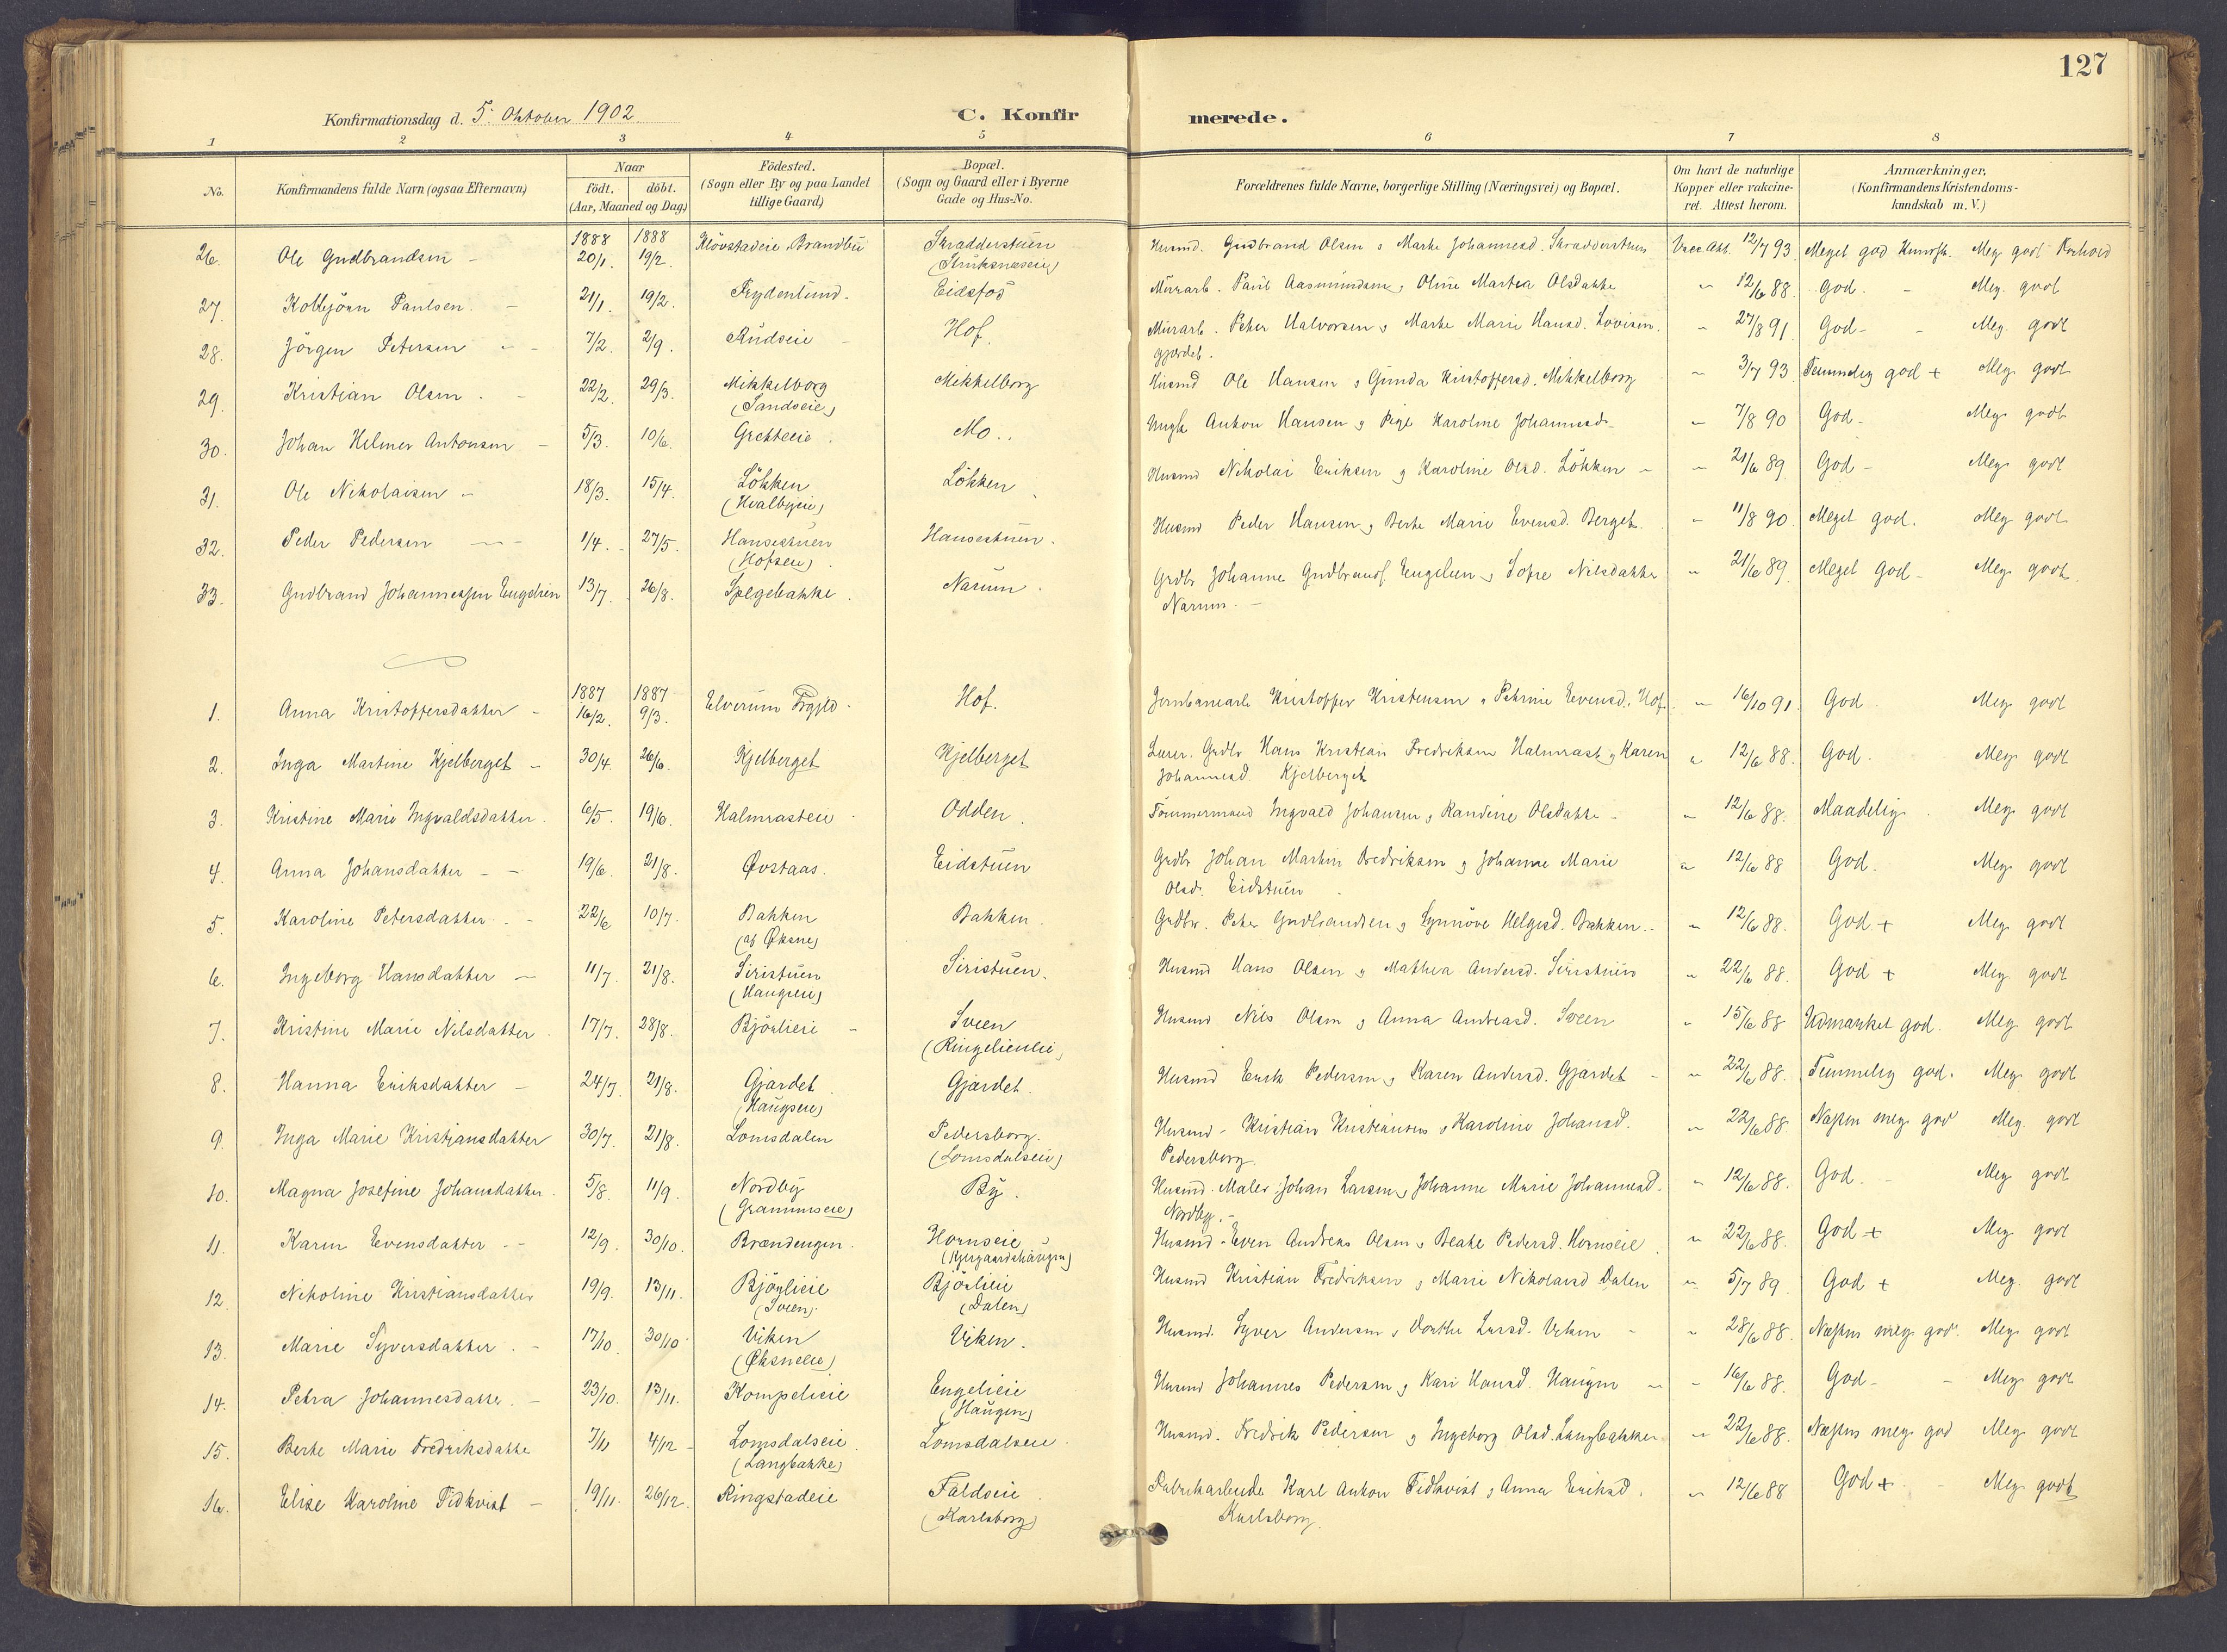 127
Konfirmationsdag d. 5. Oktober 1902.
C. Konfirmerede.
1 2 3 4 5 6 7 8
No. Konfirmandens fulde Navn (ogsaa Efternavn) Naar född. döbt. (Aar, Maaned og Dag.) Födested. (Sogn eller By og paa Landet tillige Gaard) Bopæl. (Sogn og Gaard eller i Byerne Gade og Hus-No. Forældrenes fulde Navne, borgerlige Stilling (Næringsvei) og Bopæl. Om havt de naturlige Kopper eller vakcineret. Attest herom. Anmærkninger. (Konfirmandens Kristendomskundskab m. V.)
1888 1888
26. Ole Gudbrandsen - 20/1. 19/2. Klövstadeie, Brandbu Skradderstuen Husmd. Gudbrand Olsen & Marte Johannesd. Skradderstuen Vacc. Att. 12/7 93. Meget god Kundsk. Meg. godt Forhold
27. Kolbjörn Paulsen. - 21/1. 19/2. Frydenlund. Eidsfos Murarb. Paul Aasmundsen & Oline Martea Olsdatter " 12/6 88. God. - Meg. godt
28. Jörgen Petersen - 7/2. 2/9. Rudseie Hof. Murarb. Peter Halvorsen & Marte Marie Hansd. Lovisen- " 27/8 91. God - Meg. godt
gjærdet.
29. Kristian Olsen. 22/2. 29/3. Mikkelborg Mikkelborg Husmd Ole Hansen & Gunda Kristoffersd. Mikkelborg " 3/7 93 Temmelig god + Meg. godt
(Sandseie)
30. Johan Helmer Antonsen - 5/3. 10/6. Mo. Ungk. Anton Hansen & Pige Karoline Johannesd. " 7/8 90 God - Meg. godt
31. Ole Nikolaisen - 18/3. 15/4. Lökken Lökken Husmd Nikolai Eriksen & Karoline Olsd. Lökken " 21/6 89 God - Meg. godt
(Hvalbyeie)
32. Peder Pedersen - 1/4. 27/5. Hansestuen Hansestuen. Husmd Peder Hansen & Berte Marie Evensd. Berget " 11/8 90. Meget god. Meg. godt
(Hofseie)
33. Gudbrand Johannessen Engelien 13/7. 26/8. Spegebakke. Narum. Grdbr. Johanne Gudbrands. Engelien & Sofie Nilsdatter " 21/6 89. Meget God - Meg. godt.
Narum. -
1887 1887
1. Anna Kristoffersdatter - 16/2. 9/3. Elverum Prgjld. Hof. Jernbanearb. Kristoffer Kristensen & Petrine Evensd. Hof. " 16/10 91. God. Meg. godt
2. Inga Martine Kjelberget - 30/4. 26/6. Kjelberget Kjelberget Lærer. Grdbr. Hans Kristian Fredriksen Halmrast & Karen " 12/6 88. God. Meg. godt
Johannesd. Kjelberget
3. Kristine Marie Ingvaldsdatter. 6/5. 19/6. Halmrasteie Odden. Tömmermand Ingvald Johansen & Randine Olsdatter - " 12/6 88. Maadelig. Meg. godt
4. Anna Johansdatter - - 19/6. 21/8. Øvstaas. Eidstuen Grdbr. Johan Martin Fredriksen & Johanne Marie " 12/6 88 God. Meg. godt
Olsd. Eidstuen
5. Karoline Petersdatter. - 22/6 10/7. Bakken Bakken. Grdbr. Peter Gudbrandsen & Synnöve Helgesd. Bakken. " 12/6 88. God + Meg. godt
(af Øksne)
6. Ingeborg Hansdatter - 11/7. 21/8. Siristuen Siristuen. Husmd Hans Olsen & Mathea Andersd. Siristuen " 22/6 88. God + Meg. godt
(Haugseie)
7. Kristine Marie Nilsdatter. 17/7. 28/8. Bjönlieie - Sveen Husmd Nils Olsen & Anna Andreasd. Sveen " 15/6 88 Udmærket god. Meg. godt
(Ringelieneie)
8. Hanna Eriksdatter - 24/7. 21/8. Gjærdet Gjærdet. Husmd Erik Pedersen & Karen Andersd. Gjærdet - " 22/6 88. Temmelig god. Meg. godt
(Haugseie)
9. Inga Marie Kristiansdatter 30/7. 21/8. Lomsdalen Pedersborg. Husmd - Kristian Kristiansen & Karoline Johansd. " 22/6 88. Næsten meg. god Meg. godt
(Lomsdalseie) Pedersborg.
10. Magna Josefine Johansdatter. 5/8. 11/9. Nordby By. Husmd. Maler Johan Larsen & Johanne Marie Johannesd. " 12/6 88. God. - Meg. godt
(Gramumseie) Nordby. -
11. Karen Evensdatter - - 12/9. 30/10. Brændengen. Hornseie Husmd. Even Andreas Olsen & Beate Pedersd. Hornseie " 22/6 88. God + Meg. godt
12. Nikoline Kristiansdatter 19/9. 13/11. Bjönlieie Bjönlieie Husmd Kristian Fredriksen & Marie Nikolaisd Dalen " 5/7 89 God + Meg. godt
(Sveen). (Dalen)
13. Marie Syversdatter. - 17/10. 30/10. Viken Viken. Husmd. Syver Andersen & Dorthe Larsd. Viken - " 28/6 88. Næsten meg. god. Meg. godt
(Øksneeie)
14. Petra Johannesdatter. - 23/10. 13/11. Kompelieie Engelieie Husmd Johannes Pedersen & Kari Hansd. Haugen " 16/6 88. God - - Meg. godt
(Haugen)
15. Berte Marie Fredriksdatter 7/11 4/12 - Lomsdalseie. Lomsdalseie. Husmd. Fredrik Pedersen & Ingeborg Olsd. Langbakken " 22/6 88. Næsten meg. god Meg. godt
(Langbakke)
16. Elise Karoline Fidkvist - 19/11. 26/12. Ringstadeie Faldseie Fabrikarbeide Karl Anton Fidkvist & Anna Eriksd. " 12/6 88 God + - Meg. godt
(Karlsborg) Karlsborg.